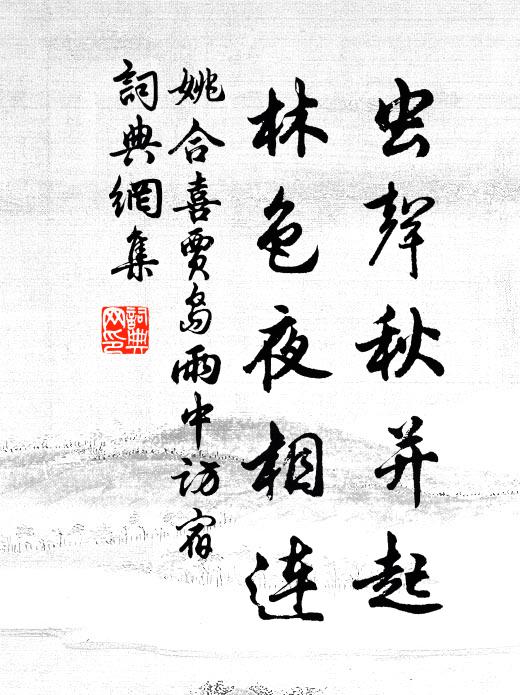 虫聲秋并起
林色夜相連
姚合喜賈島雨中訪宿
詞典網集
詞典网印